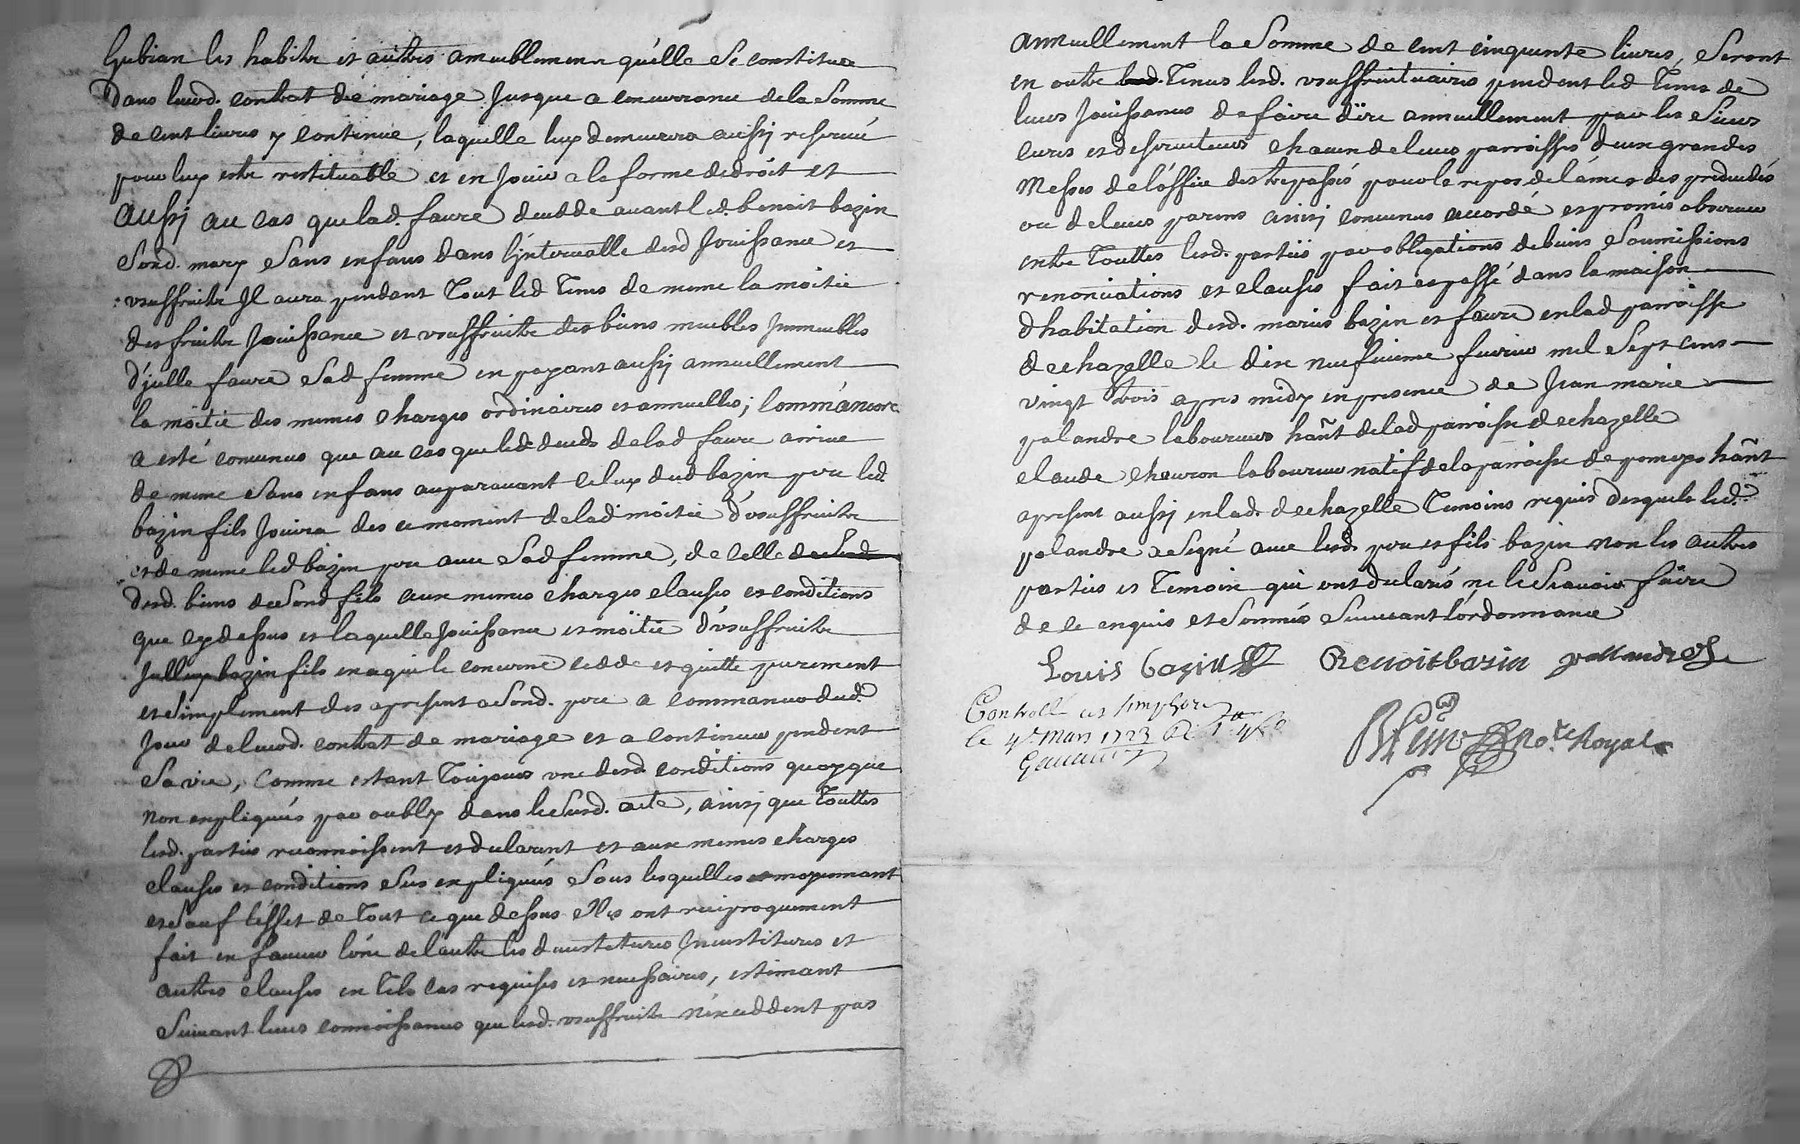 Gubian les habitz et autres ameublement qu'elle se constitua
dans leurd. contrat de mariage jusque a concurrance de la somme
de cent livres y contenue, laquelle luy demeurera aussy reservé
pour luy estre restituable et en jouir a la forme de droit et
aussy au cas que lad. faure deceddé avant led. benoit bazin
sond. mary sans enfans dans l'intervalle desd jouissance et
usuffruitz Il aura pendant tout led tems de meme la moitié
des fruitz jouissance et usuffruitz des biens meubles immeubles
d'jcelle faure sad femme en payant aussy annuellement
la moitié des memes charges ordinaires et annuelles; comm'ancore
a esté convenus que au cas que led. deceds de lad faure arrive
de meme sans enfans auparavant celuy dud bazin pere led.
bazin fils jouira des ce moment de lad moitié d'usuffruitz
et de meme led bazin pere avec sad femme, de celle
desd. biens de sond fils aux memes charges clauses et conditions
que cy dessus et laquelle jouissance et moitié d'usuffruitz
Jcelluy bazin fils en a qui le concerne cedde et quitte purement
et simplement des apresent a sond. pere a commancer dud.
jour de leurd. contrat de mariage et a continuer pendent
sa vie, comme estant toujours une desd. conditions quoyque
non expliqués par oubly dans le susd. acte, ainsy que touttes
lesd. parties reconnoissent et declarent et aux memes charges
clauses et conditions sus expliqués sous lesquelles moyennant
et sauf l'effet de tout ce que dessus elles ont reciproquement
fait en faveur l'une de l'autre les devestitures investitures et
autres clauses en tels cas requises et necessaires, estimant
suivant leurs connoissances que lesd. usuffruitz n'exceddent pas
annuellement la somme de cent cinquente livres, seront
en outre tenus lesd. usuffruituaires pendent led tems de
leurs jouissances de faire dire annuellement par les sieurs
cures et deserviteurs chacun de leurs parroisses deux grandes
messes de l'office des trepassés pour le repos de l'ame des predecedés
ou de leurs parens ainsy convenus accordé et promis observer
entre touttes lesd. parties par obligations de biens soumissions
renonciations et clauses fait et passé dans la maison
d'habitation desd. mariés bazin et faure en lad parroisse
de chazelle le dixe neufvieme fevrier mil sept cens
vingt trois apres midy en presence de Jean marie
palandre laboureur hañt de lad parroisse de chazelle
claude chevron laboureur natif de la parroisse de pomeys hañt
apresent aussy en lad. de chazelle temoins requis desquels led.
palandre a signé avec lesd. pere et fils bazin non les autres
parties et temoin qui ont declarés ne le scavoir faire
de ce enquis et sommés suivant l'ordonnance
Louis bazin Benoit bazin pallandre
Controllé et
le 4e. mars 1723
no.re Royal